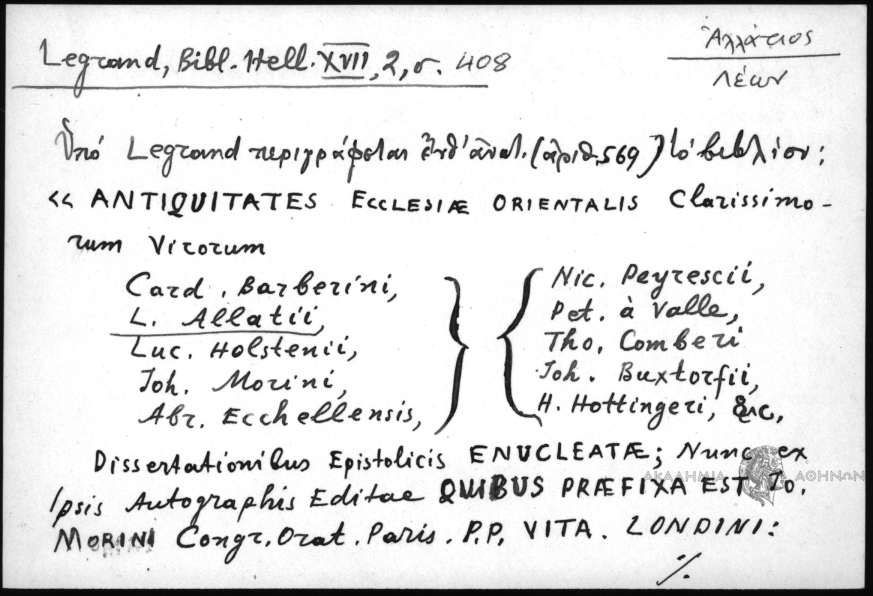 Legrand, Bibl. Hell. XVII, 2, σ. 408
Ἀλλάτιος
Λέων
Ὑπό Legrand περιγράφεται ἐνθ' ἀνωτ. (ἀριθ. 569) τό βιβλίον:
<< ANTIQUITATES ECCLESIÆ ORIENTALIS Clarissimo-
rum Virorum
Card. Barberini,
L. Allatii,
Luc. Holstenii,
Joh. Morini,
Abr. Ecchellensis,
Nic. Peyrescii,
Pet. à Valle,
Tho. Comberi
Joh. Buxtorfii,
H. Hottingeri, &c,
Dissertationibus Epistolicis ENUCLEATÆ; Nunc ex
Ipsis Autographis Editae QUIBUS PRÆFIXA EST Jo.
MORINI Congr. Orat. Paris. P.P. VITA. LONDINI:
./.
ΑΚΑΔΗΜΙΑ ΑΘΗΝΩΝ